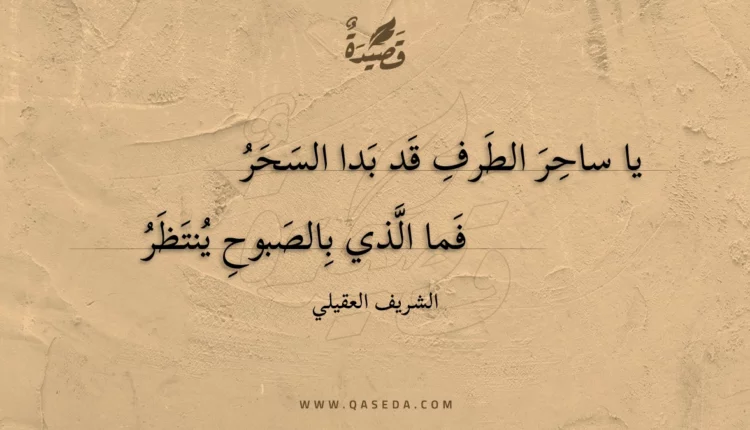 قَصِيدَةٌ
يا ساحِرَ الطَرفِ قَد بَدا السَحَرُ
فَما الَّذي بِالصَبوحِ يُنتَظَرُ
الشريف العقيلي
WWW.QASEDA.COM